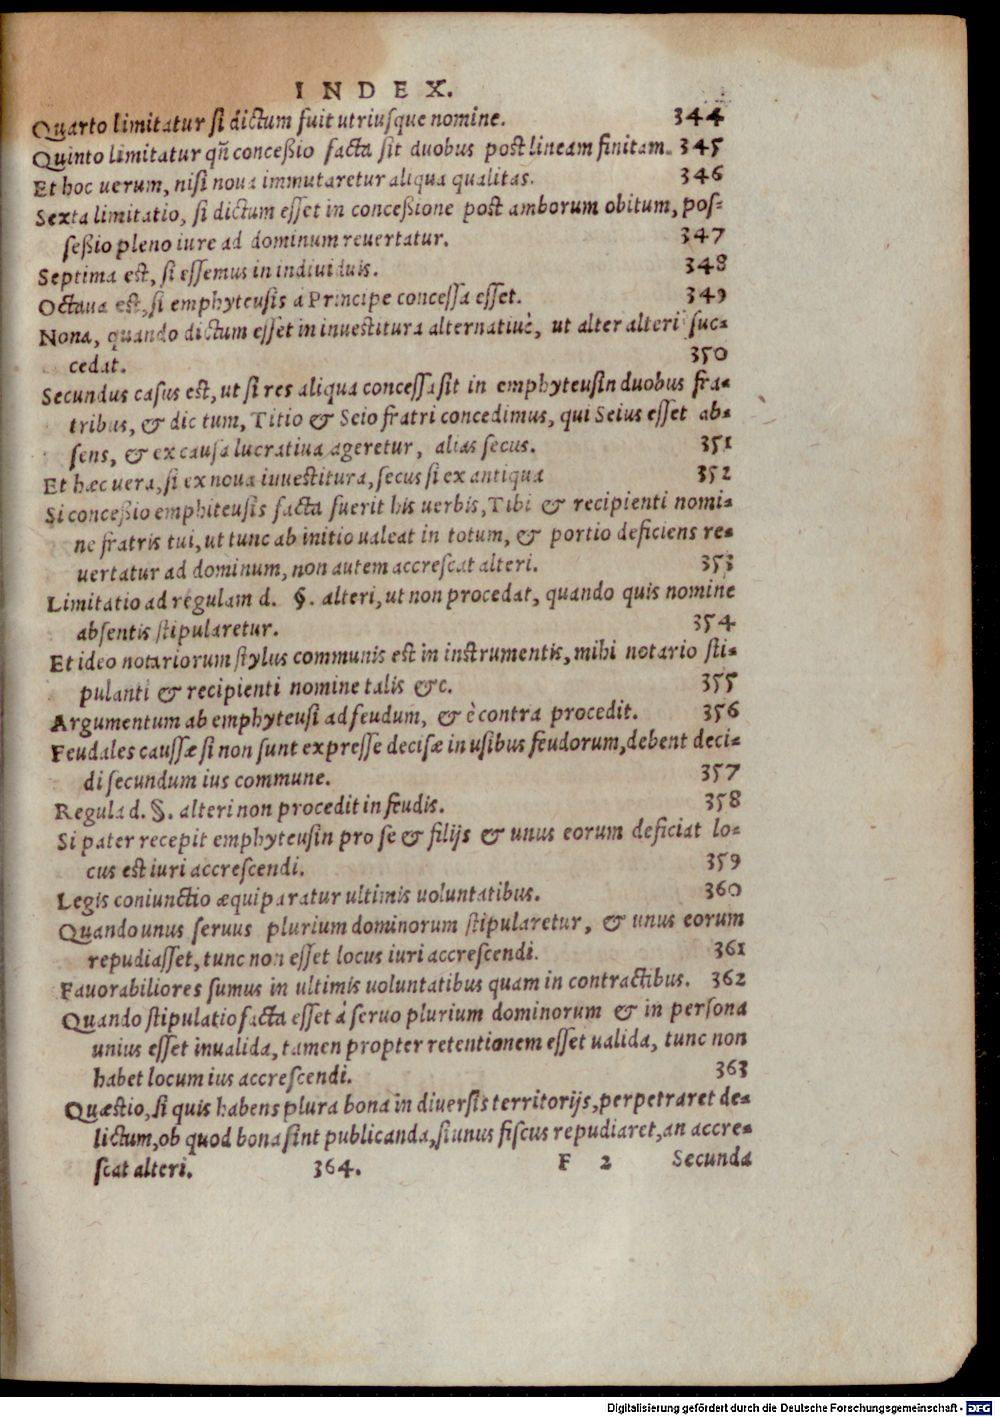 INDEX.
Quarto limitatur ſi dictum fuit utriuſque nomine. 344
Quinto limitatur qñ conceßio facta ſit duobus poſt lineam finitam. 345
Et hoc uerum, niſi noua immutaretur aliqua qualitas. 346
Sexta limitatio, ſi dictum eſſet in conceßione poſt amborum obitum, poſ=
ſeßio pleno iure ad dominum reuertatur. 347
Septima eſt, ſi eſſemus in indiuiduis. 348
Octaua eſt, ſi emphyteuſis à Principe conceſſa eſſet. 349
Nona, quando dictum eſſet in inueſtitura alternatiuè, ut alter alteri ſuc=
cedat. 350
Secundus caſus eſt, ut ſi res aliqua conceſſa ſit in emphyteuſin duobus fra=
tribus, & dic tum, Titio & Seio fratri concedimus, qui Seius eſſet ab=
ſens, & ex cauſa lucratiua ageretur, alias ſecus. 351
Et hæc uera, ſi ex noua iuueſtitura, ſecus ſi ex antiqua 352
Si conceßio emphiteuſis facta fuerit his uerbis, Tibi & recipienti nomi=
ne fratris tui, ut tunc ab initio ualeat in totum, & portio deficiens re=
uertatur ad dominum, non autem accreſcat alteri. 353
Limitatio ad regulam d. §. alteri, ut non procedat, quando quis nomine
abſentis ſtipularetur. 354
Et ideo notariorum ſtylus communis eſt in inſtrumentis, mihi notario ſti=
pulanti & recipienti nomine talis &c. 355
Argumentum ab emphyteuſi ad feudum, & è contra procedit. 356
Feudales cauſſæ ſi non ſunt expreſſe deciſæ in uſibus feudorum, debent deci=
di ſecundum ius commune. 357
Regula d. §. alteri non procedit in feudis. 358
Si pater recepit emphyteuſin pro ſe & filijs & unus eorum deficiat lo=
cus eſt iuri accreſcendi. 359
Legis coniunctio æquiparatur ultimis uoluntatibus. 360
Quando unus ſeruus plurium dominorum ſtipularetur, & unus eorum
repudiaſſet, tunc non eſſet locus iuri accreſcendi. 361
Fauorabiliores ſumus in ultimis uoluntatibus quam in contractibus. 362
Quando ſtipulatio facta eſſet à ſeruo plurium dominorum & in perſona
unius eſſet inualida, tamen propter retentionem eſſet ualida, tunc non
habet locum ius accreſcendi. 363
Quæſtio, ſi quis habens plura bona in diuerſis territorijs, perpetraret de=
lictum, ob quod bona ſint publicanda, ſi unus fiſcus repudiaret, an accre=
ſcat alteri. 364. F 2 Secunda
Digitalisierung gefördert durch die Deutsche Forschungsgemeinschaft - DFG